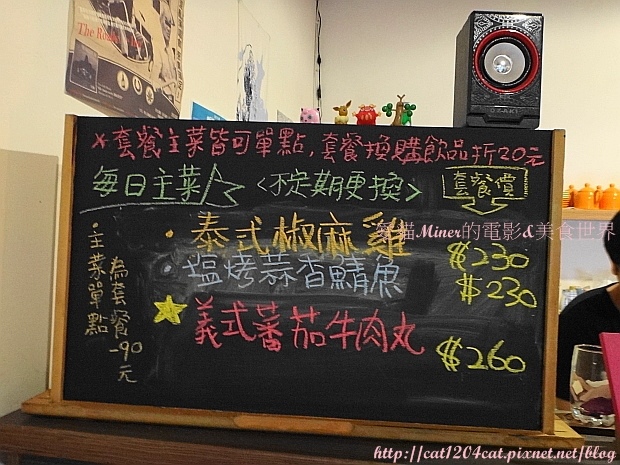 The Ro
×套餐主菜皆可單點,套餐換購飲品折20元
每日主菜
<不定期更換>
套餐價
貓Miner的電影&美食世界
・泰式椒麻雞 $230
・塩烤蒜香鯖魚 $230
義式蕃茄牛肉丸 $260
・主菜單點
為套餐-90元
http://cat1204cat.pixnet.net/blog